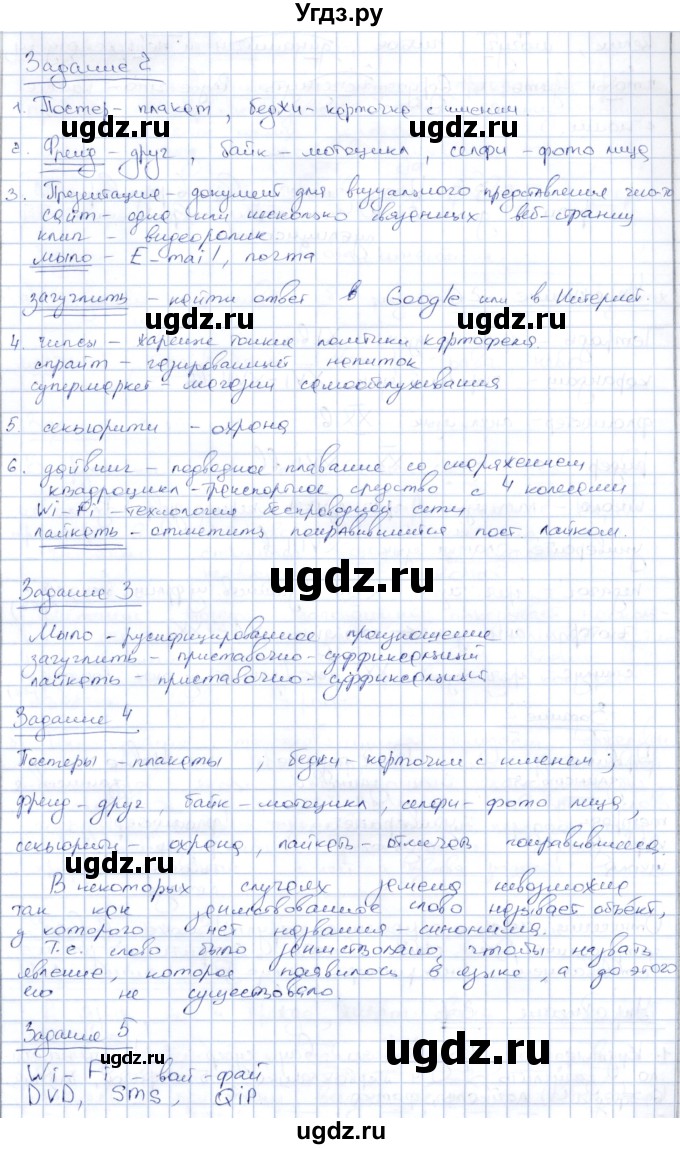 Угдз.ру
Задание 2
1. Постер - плакат, беджи - карточка с именем.
ugdz.ru ugdz.ru
2. Френд - друг, байк - мотоцикл, селфи - фото лица
3. Презентация - документ для визуального представления чего-то
ugdz.ru
сайт - одна или несколько связанных веб-страниц
клип - видеоролик
мыло - E-mail, почта
загуглить - найти ответ в Google или в Интернет.
ugdz.ru
4. чипсы - жареные тонкие ломтики картофеля.
спрайт - газированный напиток
супермаркет - магазин самообслуживания
5. секьюрити - охрана
ugdz.ru ugdz.ru
6. дайвинг - подводное плавание со снаряжением
квадроцикл - транспортное средство с 4 колесами
Wi-Fi - технология беспроводной сети
лайкать - отметить понравившийся пост лайком.
ugdz.ru
Задание 3
Мыло - русифицированное произношение
загуглить - приставочно-суффиксальный
лайкать - приставочно-суффиксальный
ugdz.ru
Задание 4
Постеры - плакаты, беджи - карточки с именем;
френд - друг, байк - мотоцикл, селфи - фото лица,
секьюрити - охрана, лайкать - отмечать понравившееся.
ugdz.ru
В некоторых случаях замена невозможна
так как заимствованное слово называет объект,
у которого нет названия - синонима.
Т.е. слово было заимствовано, чтобы назвать
явление, которое появилось в языке, а до этого
его не существовало.
ugdz.ru
Задание 5
ugdz.ru ugdz.ru
Wi-Fi - вай-фай
DVD, Sms, QiP
ugdz.ru